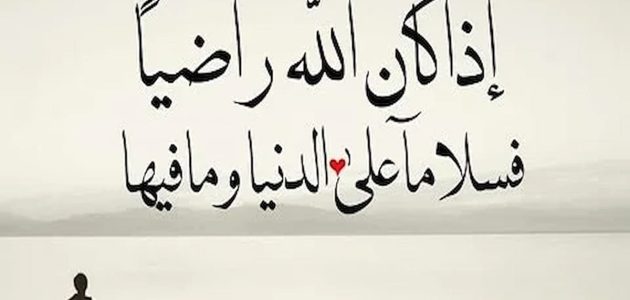 إذا كان الله راضياً
فسلاماً على الدنيا وما فيها